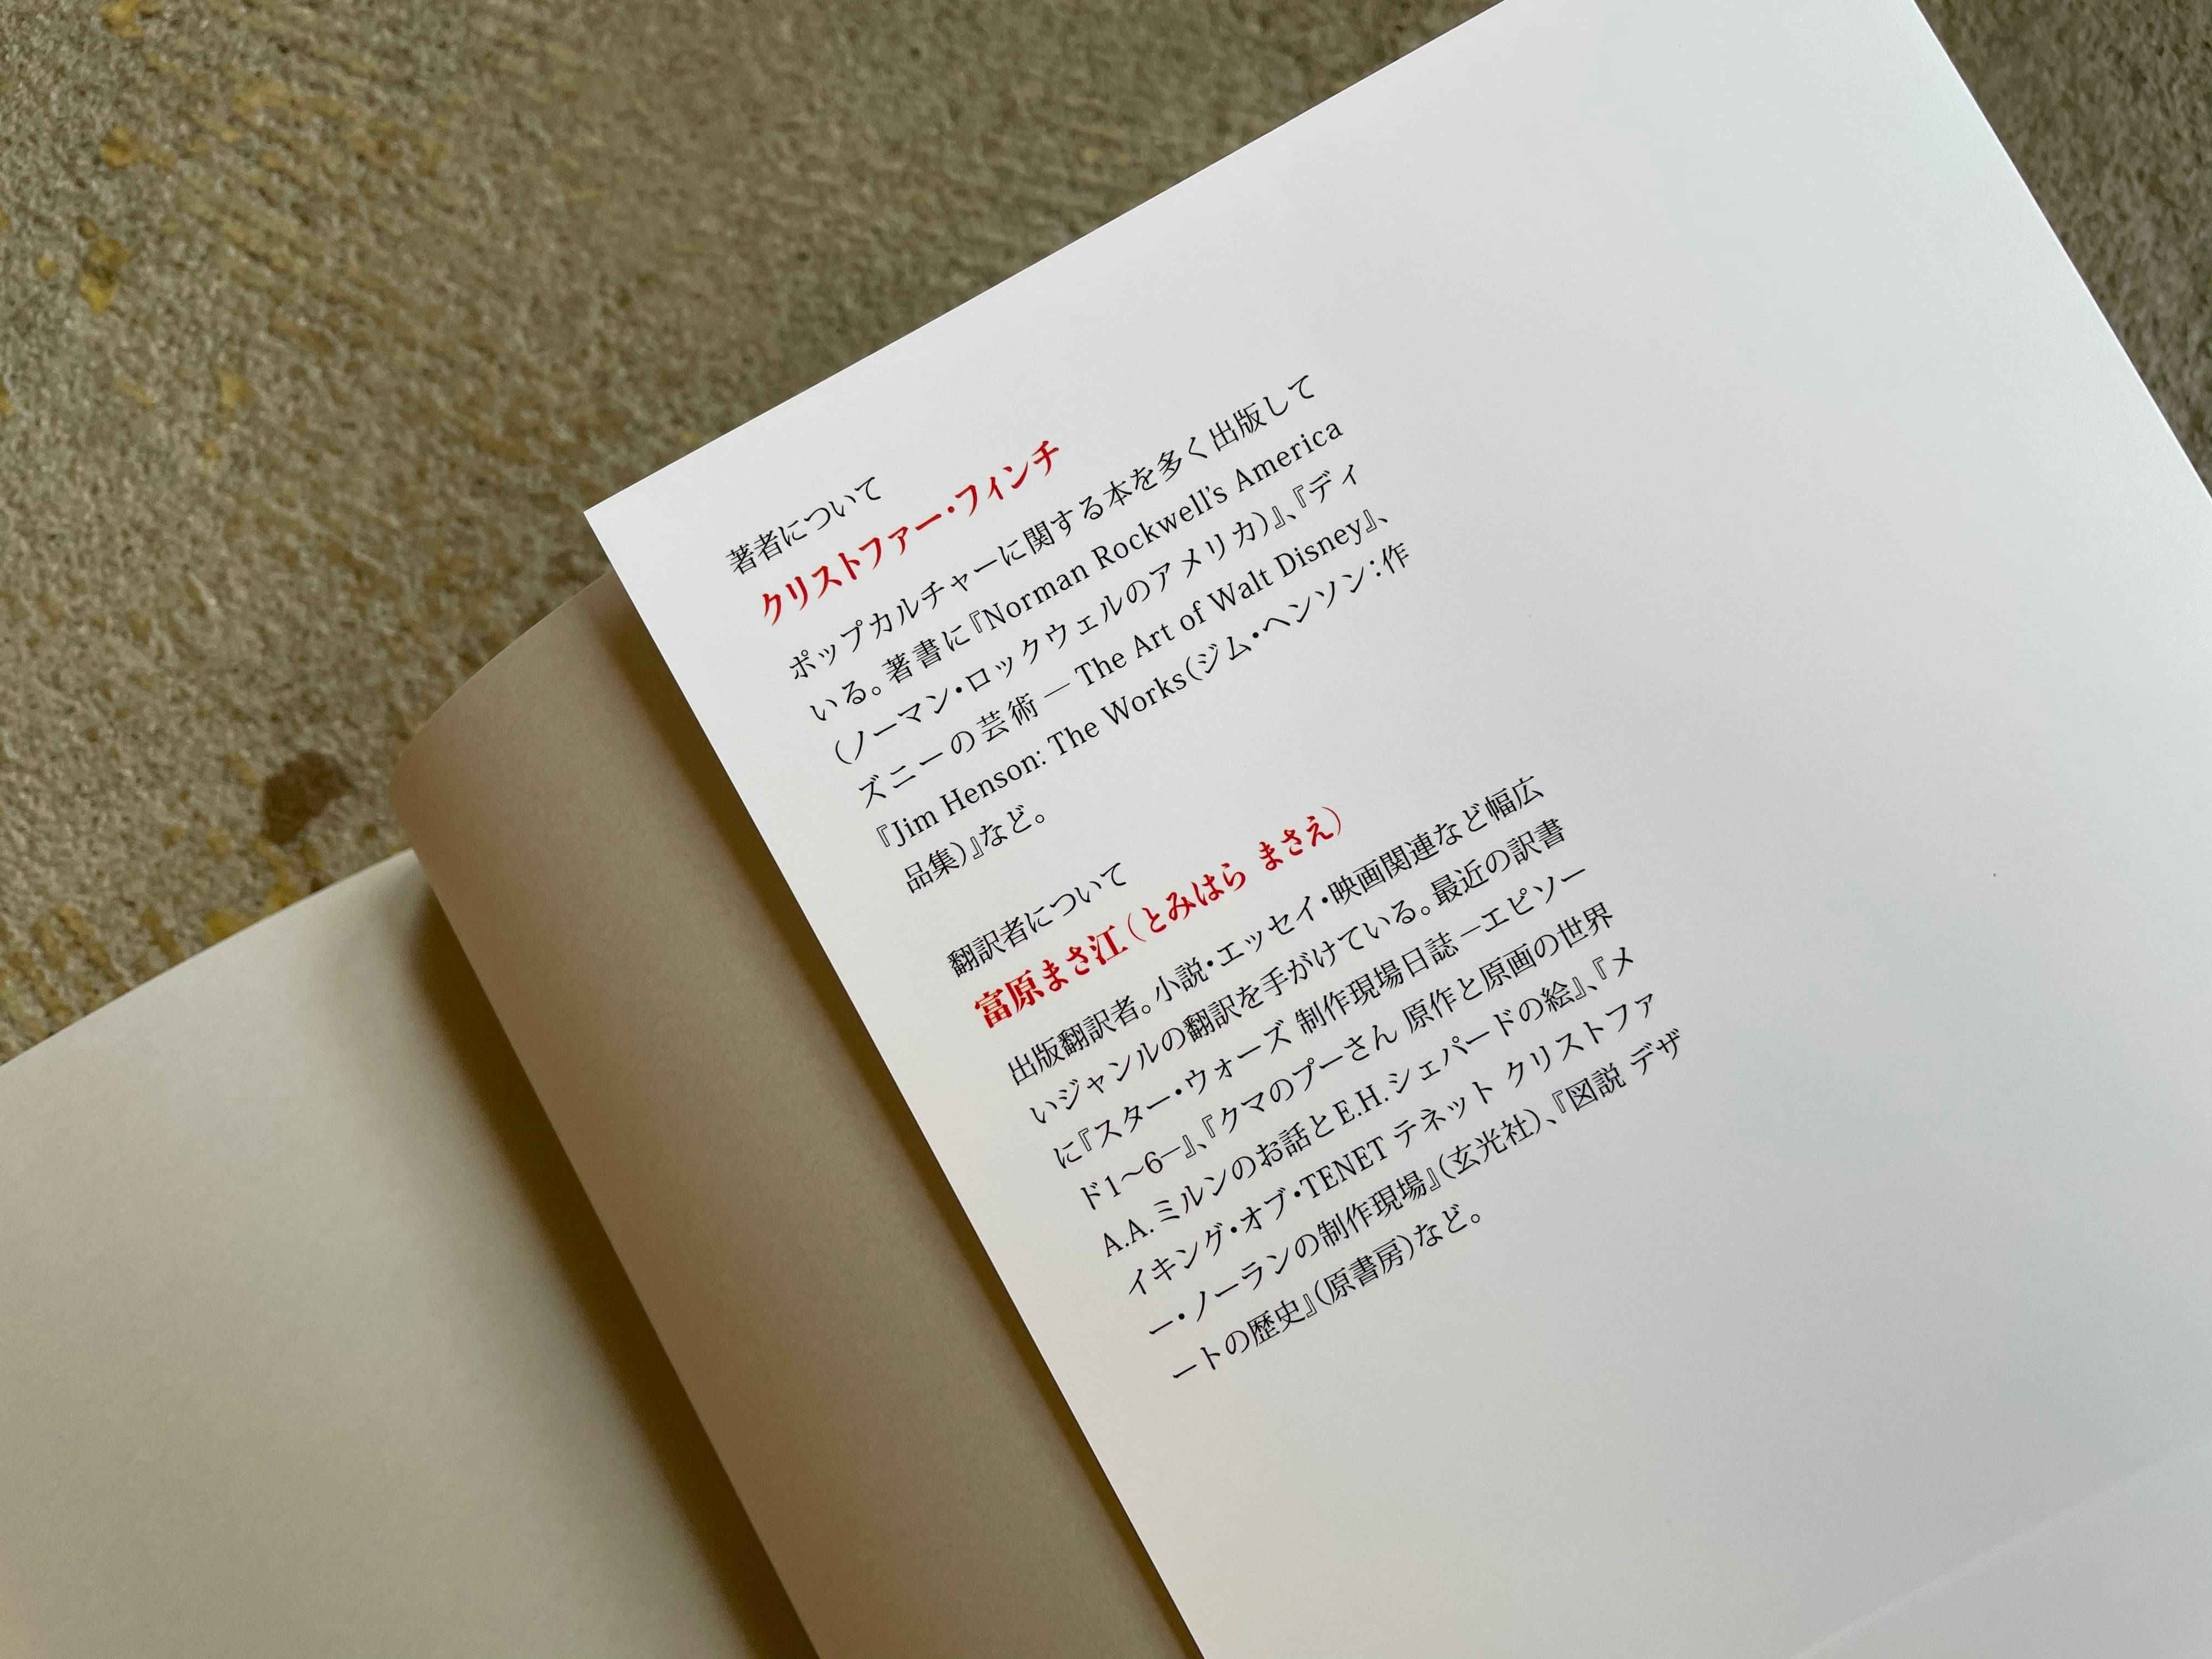 著者について
クリストファー・フィンチ
ポップカルチャーに関する本を多く出版して
いる。著書に『Norman Rockwell’s America
（ノーマン・ロックウェルのアメリカ）』、『ディ
ズニーの芸術 ― The Art of Walt Disney』、
『Jim Henson: The Works（ジム・ヘンソン：作
品集）』など。
翻訳者について
富原まさ江（とみはら まさえ）
出版翻訳者。小説・エッセイ・映画関連など幅広
いジャンルの翻訳を手がけている。最近の訳書
に『スター・ウォーズ 制作現場日誌 ―エピソー
ド1〜6―』、『クマのプーさん 原作と原画の世界
A.A.ミルンのお話とE.H.シェパードの絵』、『メ
イキング・オブ・TENET テネット クリストファ
ー・ノーランの制作現場』（玄光社）、『図説 デザ
ートの歴史』（原書房）など。